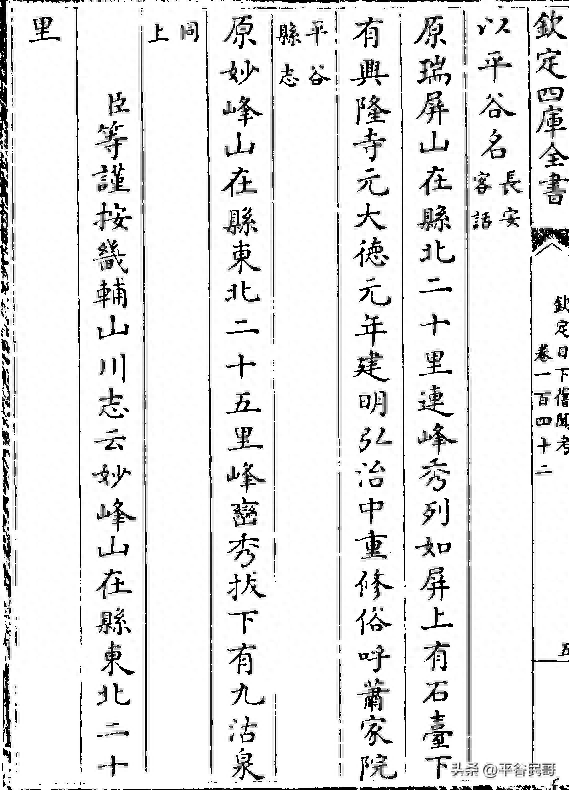 欽定四庫全書
欽定日下舊聞考
卷一百四十二
五
以平谷名長安客話
原瑞屏山在縣北二十里連峰秀列如屏上有石臺下
有興隆寺元大德元年建明弘治中重修俗呼蕭家院
平谷縣志
原妙峰山在縣東北二十五里峰巒秀拔下有九沽泉
同上
臣等謹按畿輔山川志云妙峰山在縣東北二十
里
头条 @平谷民哥